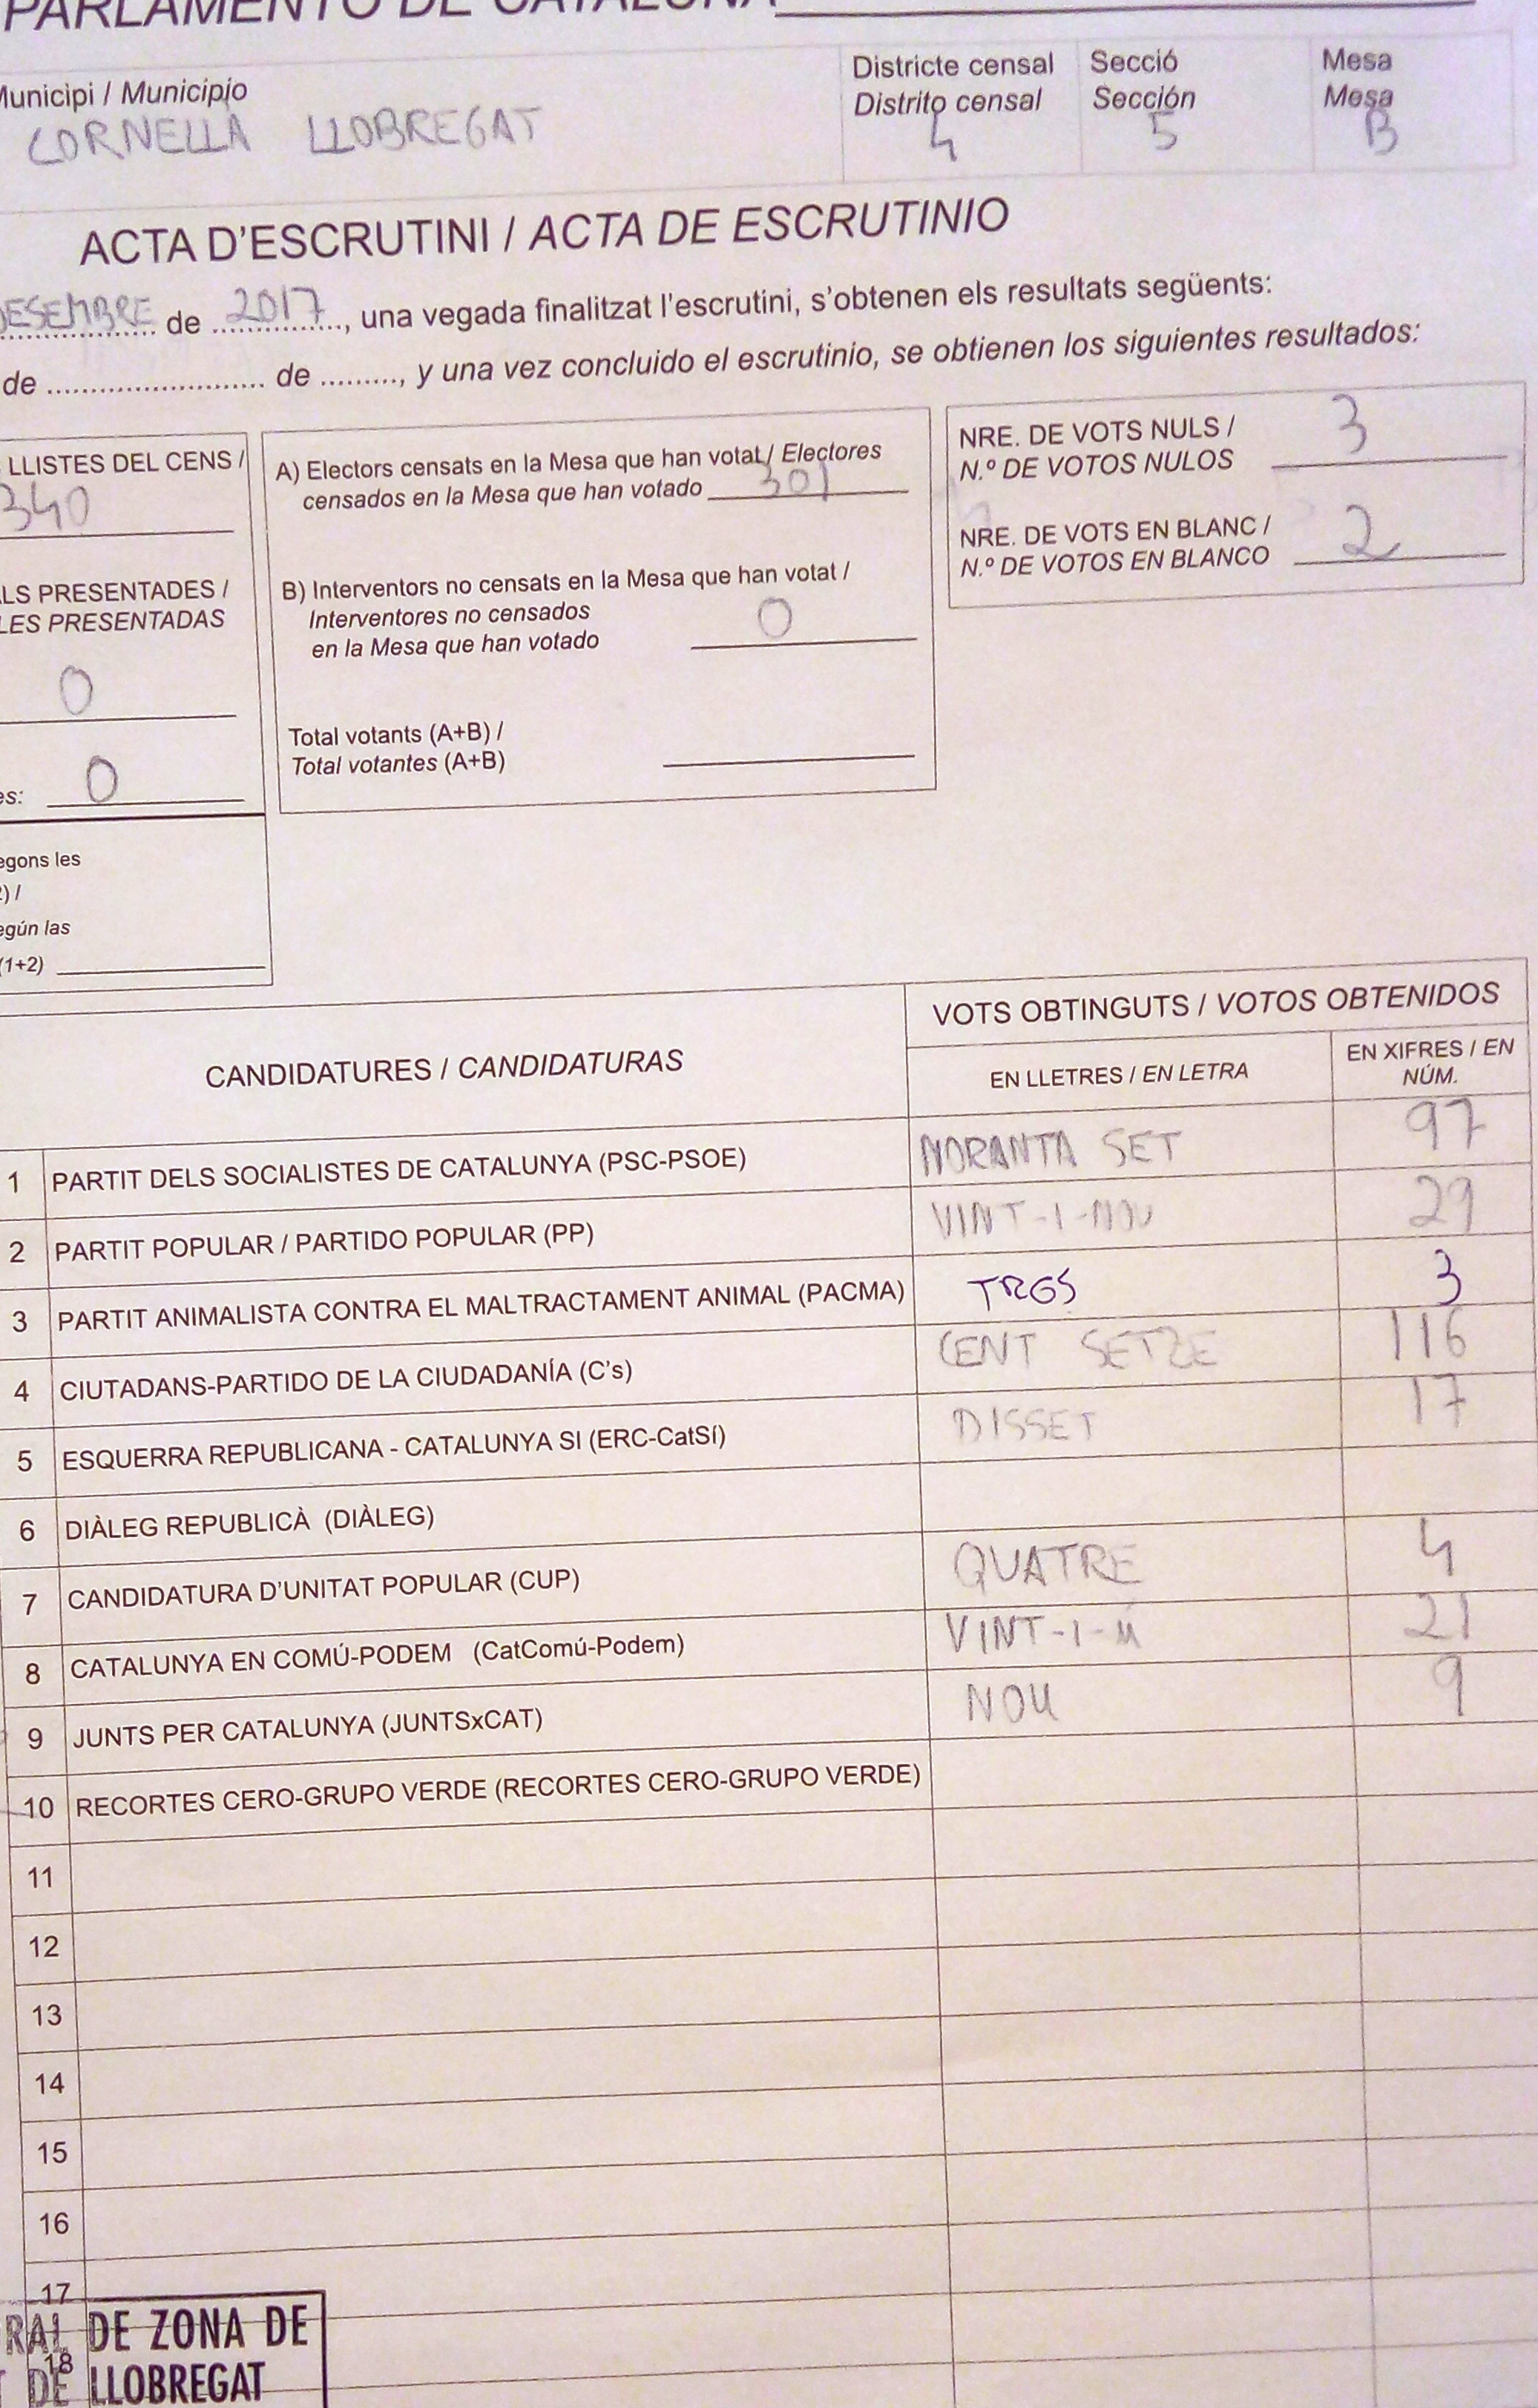 PARLAMENTO DE CATALUÑA
Municipi / Municipio
CORNELLA LLOBREGAT
Districte censal
Distrito censal
4
Secció
Sección
5
Mesa
Mesa
B
ACTA D'ESCRUTINI / ACTA DE ESCRUTINIO
DESEMBRE de 2017, una vegada finalitzat l'escrutini, s'obtenen els resultats següents:
de ........................ de ........., y una vez concluido el escrutinio, se obtienen los siguientes resultados:
LLISTES DEL CENS /
340
LS PRESENTADES /
LES PRESENTADAS
0
es: 0
egons les
) /
egún las
(1+2)
A) Electors censats en la Mesa que han votat / Electores
censados en la Mesa que han votado 301
B) Interventors no censats en la Mesa que han votat /
Interventores no censados
en la Mesa que han votado 0
Total votants (A+B) /
Total votantes (A+B)
NRE. DE VOTS NULS /
N.º DE VOTOS NULOS 3
NRE. DE VOTS EN BLANC /
N.º DE VOTOS EN BLANCO 2
CANDIDATURES / CANDIDATURAS
VOTS OBTINGUTS / VOTOS OBTENIDOS
EN LLETRES / EN LETRA
EN XIFRES / EN
NÚM.
1 PARTIT DELS SOCIALISTES DE CATALUNYA (PSC-PSOE) NORANTA SET 97
2 PARTIT POPULAR / PARTIDO POPULAR (PP) VINT-I-NOU 29
3 PARTIT ANIMALISTA CONTRA EL MALTRACTAMENT ANIMAL (PACMA) TRES 3
4 CIUTADANS-PARTIDO DE LA CIUDADANÍA (C's) CENT SETZE 116
5 ESQUERRA REPUBLICANA - CATALUNYA SI (ERC-CatSí) DISSET 17
6 DIÀLEG REPUBLICÀ (DIÀLEG)
7 CANDIDATURA D'UNITAT POPULAR (CUP) QUATRE 4
8 CATALUNYA EN COMÚ-PODEM (CatComú-Podem) VINT-I-Ú 21
9 JUNTS PER CATALUNYA (JUNTSxCAT) NOU 9
10 RECORTES CERO-GRUPO VERDE (RECORTES CERO-GRUPO VERDE)
11
12
13
14
15
16
17
RAL DE ZONA DE
18
DE LLOBREGAT